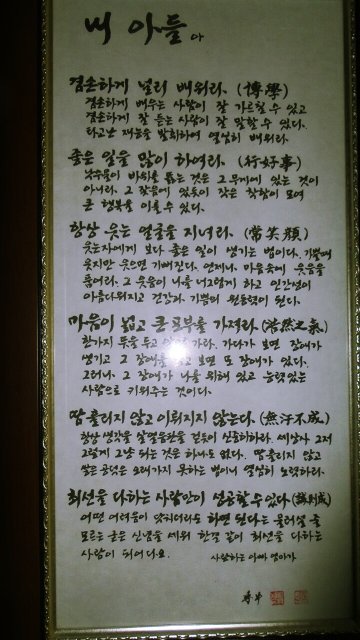 내 아들아
겸손하게 널리 배워라. (博學)
겸손하게 배우는 사람이 잘 가르칠 수 있고
겸손하게 잘 듣는 사람이 잘 말할 수 있다.
타고난 재능을 발휘하여 열심히 배워라.
좋은 일을 많이 하여라. (行好事)
낙숫물이 바위를 뚫는 것은 그 무게에 있는 것이
아니라. 그 잦음에 있듯이 작은 착함이 모여
큰 행복을 이룰 수 있다.
항상 웃는 얼굴을 지녀라. (常笑顔)
웃는자에게 보다 좋은 일이 생기는 법이다. 기쁠때
웃지만 웃으면 기뻐진다. 언제나 마음속에 웃음을
품어라. 그 웃음이 나를 너그럽게 하고 인간성이
아름다워지고 건강과 기쁨의 원동력이 된다.
마음이 넓고 큰 포부를 가져라. (浩然之氣)
한가지 뜻을 두고 가라. 가다가 보면 장애가
생기고 그 장애를 보면 또 장애가 있다.
그러나, 그 장애가 나를 위해 있고 능력있는
사람으로 키워주는 것이다.
땀흘리지 않고 이뤄지지 않는다. (無汗不成)
항상 생각을 실명 걸음이 신중하라. 세상사 그저
그렇게 그냥 되는 것은 하나도 없다. 땀흘리지 않고
쌓은 공덕은 오래가지 못하는 법이니 열심히 노력하라.
최선을 다하는 사람만이 성공할 수 있다 (誠則成)
어떤 어려움이 닥쳐더라도 하면 된다는 물러설 줄
모르는 굳은 신념을 세워 한결 같이 최선을 다하는
사람이 되어다오. 사랑하는 아빠 엄마가